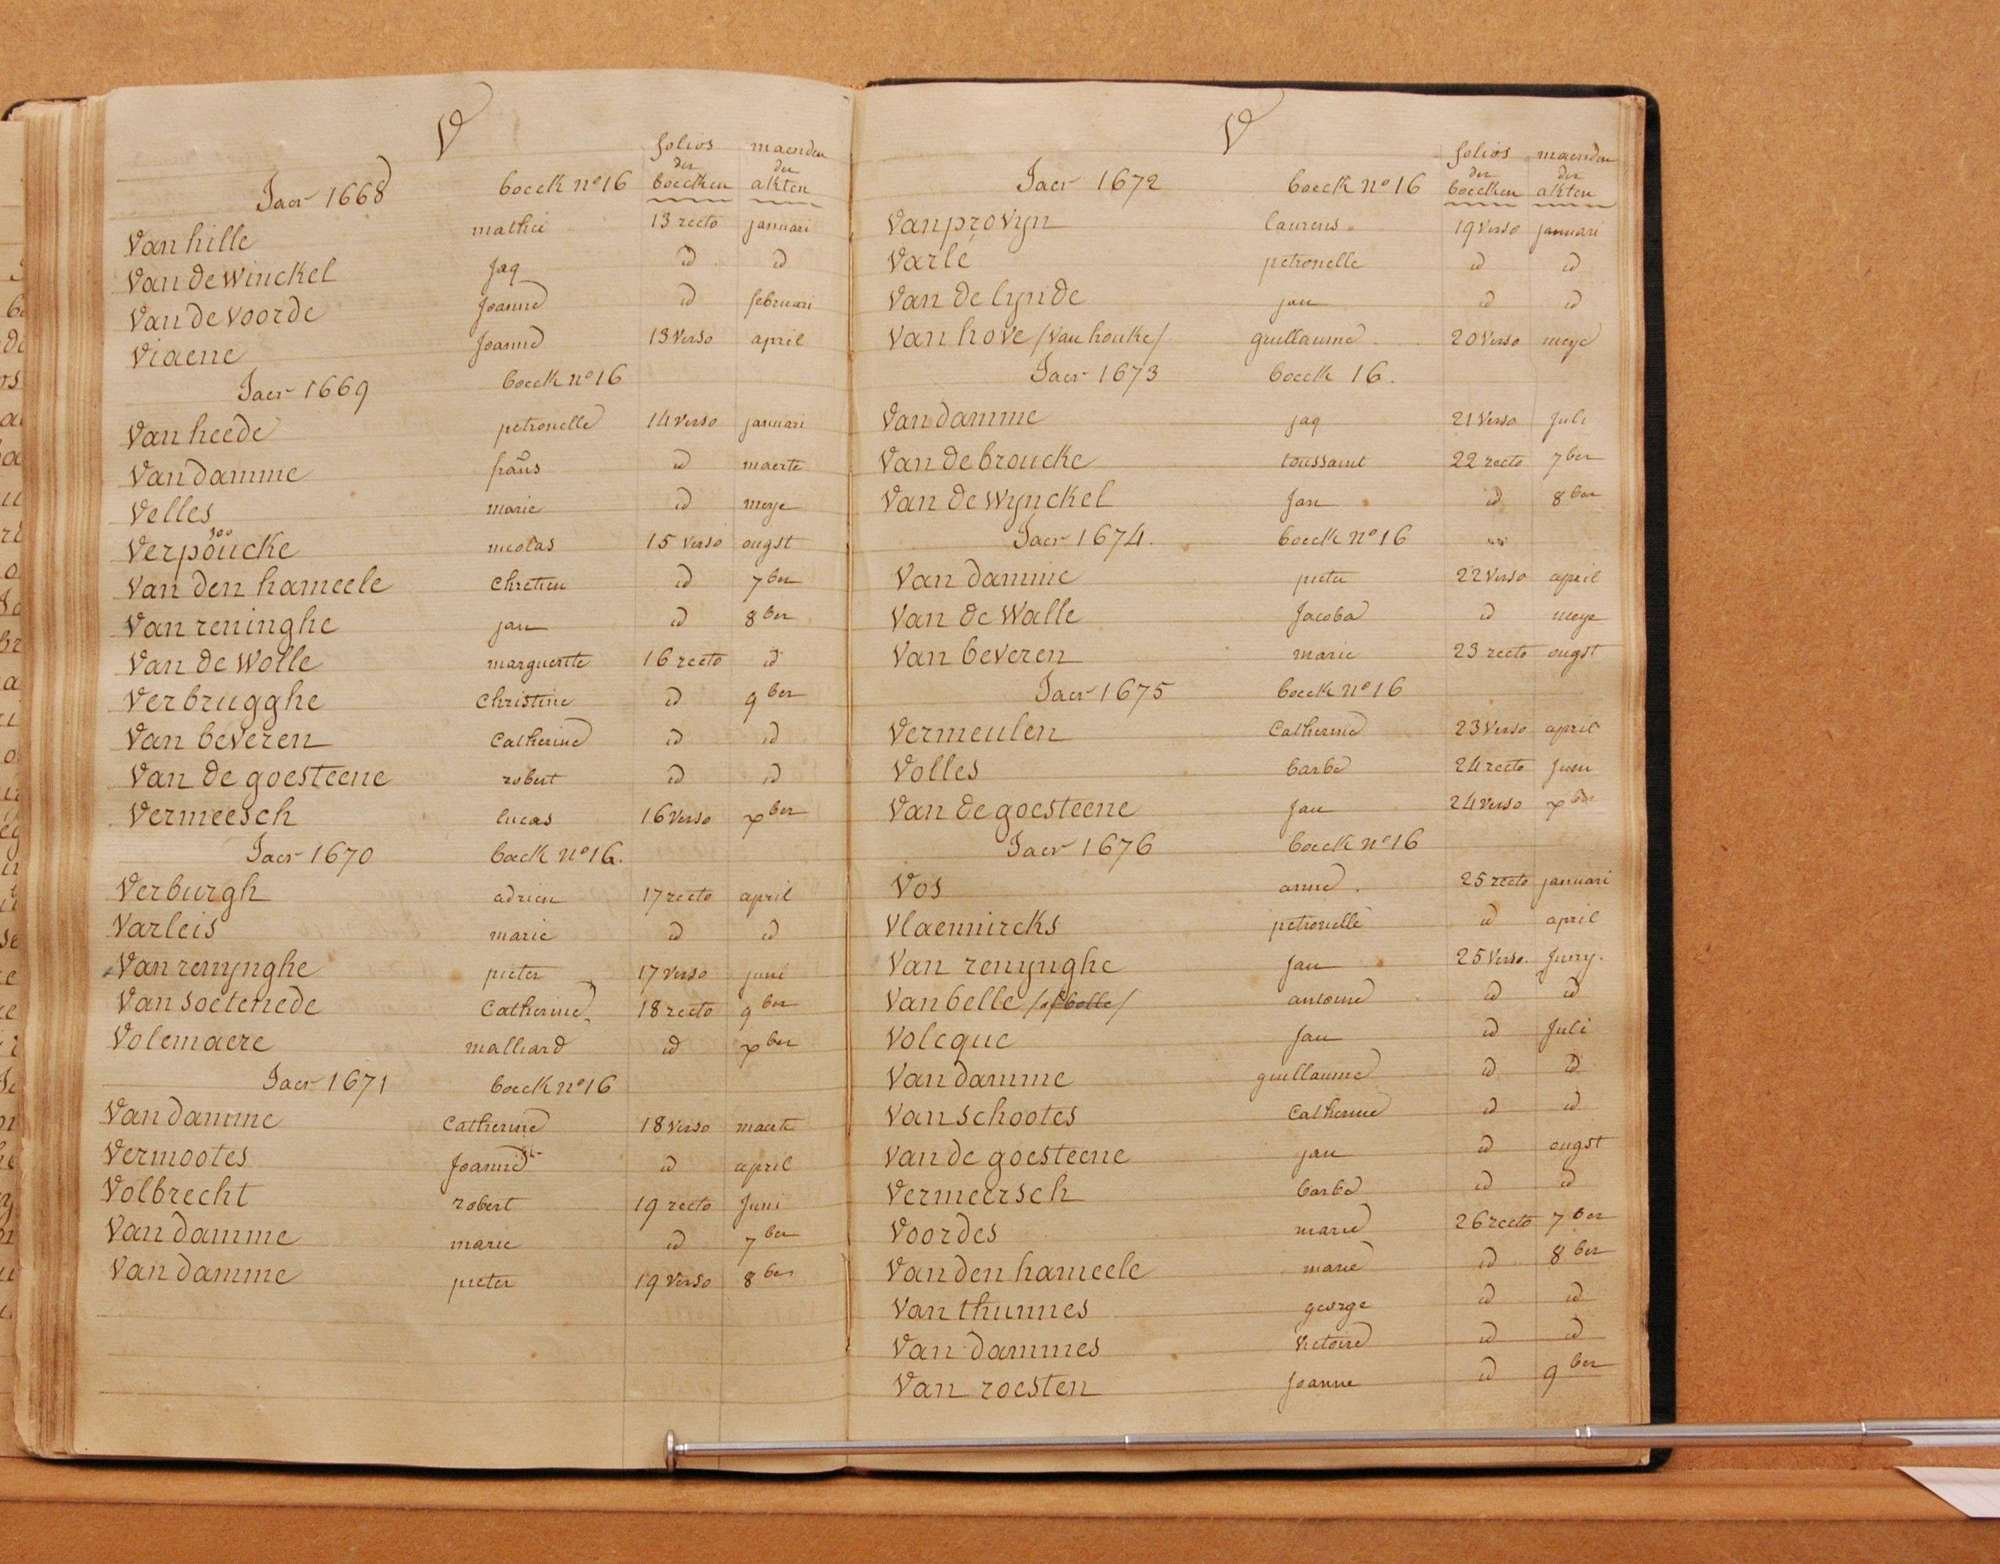 V
folios maenden
der der
Jaer 1668 boeck no 16 boecken akten
Van hille mathieu 13 recto januari
Van de Winckel jaq id id
Van de voorde Joanne id februari
Viaene Joanne 13 verso april
Jaer 1669 boeck no 16
Van heede petronelle 14 verso januari
Van damme frans id maerte
Velles marie id meye
Verpoucke nicolas 15 verso ougst
Van den hameele Chretien id 7ber
Van reninghe jan id 8ber
Van de Wolle marguerite 16 recto id
Verbrugghe Christine id 9ber
Van beveren Catherine id id
Van de goesteene robert id id
Vermeesch lucas 16 verso xber
Jaer 1670 boeck no 16.
Verburgh adrien 17 recto april
Varleis marie id id
Van renynghe pieter 17 verso juni
Van soetenede Catherine 18 recto 9ber
Volemaere malliard id xber
Jaer 1671 boeck no 16
Van damme Catherine 18 verso maerte
Vermootes Joanne id april
Volbrecht robert 19 recto Juni
Van damme marie id 7ber
Van damme pieter 19 verso 8ber
V
folios maenden
der der
Jaer 1672 boeck no 16 boecken akten
Van provyn laurens 19 verso januari
Varlé petronelle id id
Van de lynde jan id id
Van hove /Van houke/ guillaume 20 verso meye
Jaer 1673 boeck 16.
Van damme jaq 21 verso Juli
Van de broucke toussaint 22 recto 7ber
Van de Wynckel Jan id 8ber
Jaer 1674. boeck no 16
Van damme pieter 22 verso april
Van de Walle Jacoba id meye
Van beveren marie 23 recto ougst
Jaer 1675 boeck no 16
Vermeulen Catherine 23 verso april
Volles barbe 24 recto Juni
Van de goesteene Jan 24 verso xber
Jaer 1676 boeck no 16
Vos anne. 25 recto januari
Vlaemircks petronelle id april
Van renynghe Jan 25 verso. Juny.
Van belle /of bolle/ antoine id id
Volcque Jan id Juli
Van damme guillaume id id
Van schootes Catherine id id
Van de goesteene jan id ougst
Vermeersch barbe id id
Voordes marie 26 recto 7ber
Van den hameele marie id 8ber
Van thunnes george id id
Van dammes Victoire id id
Van roesten Joanne id 9ber